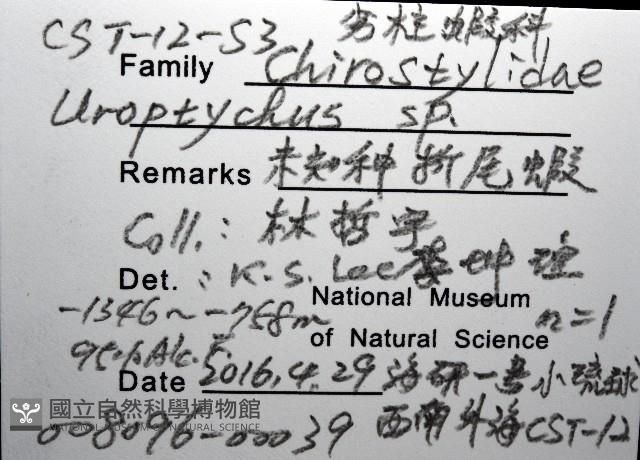 CST-12-S3 劣柱蝦科
Family Chirostylidae
Uroptychus sp.
Remarks 未知种折尾蝦
Coll.: 林哲宇
Det.: K. S. Lee 李坤瑄
-1346~-758m National Museum
of Natural Science n=1
95% Alc. F.
Date 2016.4.29 海研一号小琉球
國立自然科學博物館
NATIONAL MUSEUM OF NATURAL SCIENCE
008096-00039 西南外海CST-12